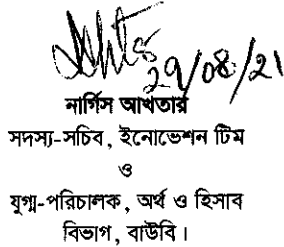 29/08/21
নার্গিস আখতার
সদস্য-সচিব, ইনোভেশন টিম
ও
যুগ্ম-পরিচালক, অর্থ ও হিসাব
বিভাগ, বাউবি।